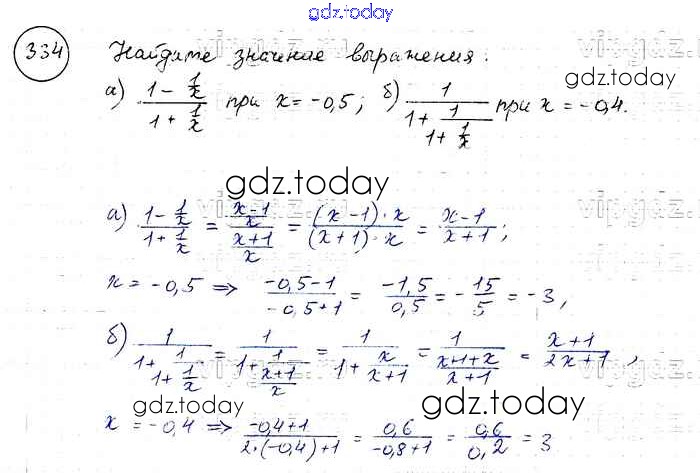 gdz.today
334 Найдите значение выражения:
а) (1 - 1/x)/(1 + 1/x) при x = -0,5; б) 1/(1 + 1/(1 + 1/x)) при x = -0,4.
gdz.today
gdz.today
а) (1 - 1/x)/(1 + 1/x) = ((x-1)/x)/((x+1)/x) = ((x-1)·x)/((x+1)·x) = (x-1)/(x+1);
x = -0,5 ⇒ (-0,5-1)/(-0,5+1) = (-1,5)/(0,5) = -15/5 = -3,
б) 1/(1 + 1/(1 + 1/x)) = 1/(1 + 1/((x+1)/x)) = 1/(1 + x/(x+1)) = 1/((x+1+x)/(x+1)) = (x+1)/(2x+1),
gdz.today
gdz.today
x = -0,4 ⇒ (-0,4+1)/(2·(-0,4)+1) = 0,6/(-0,8+1) = 0,6/0,2 = 3